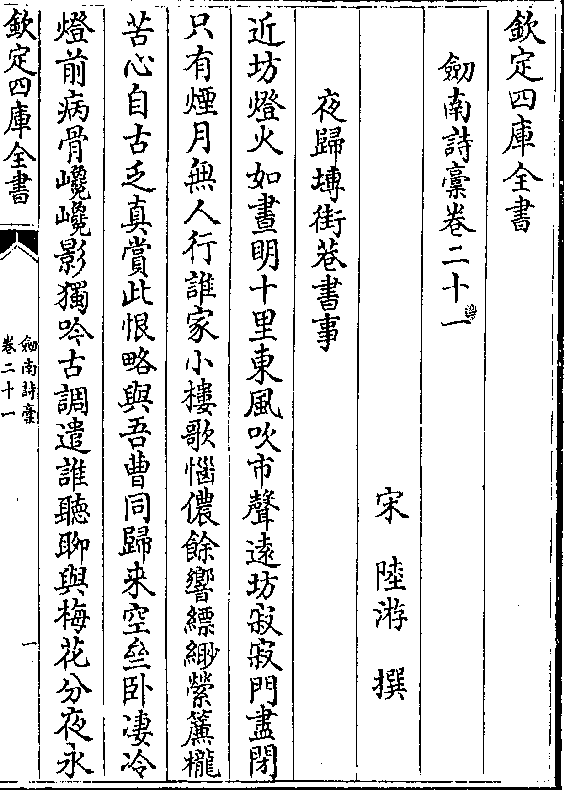 欽定四庫全書
劒南詩稾卷二十一
宋 陸游 撰
夜歸塼街巷書事
近坊燈火如晝明十里東風吹市聲遠坊寂寂門盡閉
只有煙月無人行誰家小樓歌惱儂餘響縹緲縈簾櫳
苦心自古乏真賞此恨略與吾曹同歸來空壘卧凄冷
燈前病骨巉巉影獨吟古調遣誰聽聊與梅花分夜永
欽定四庫全書
劒南詩稾
卷二十一
一